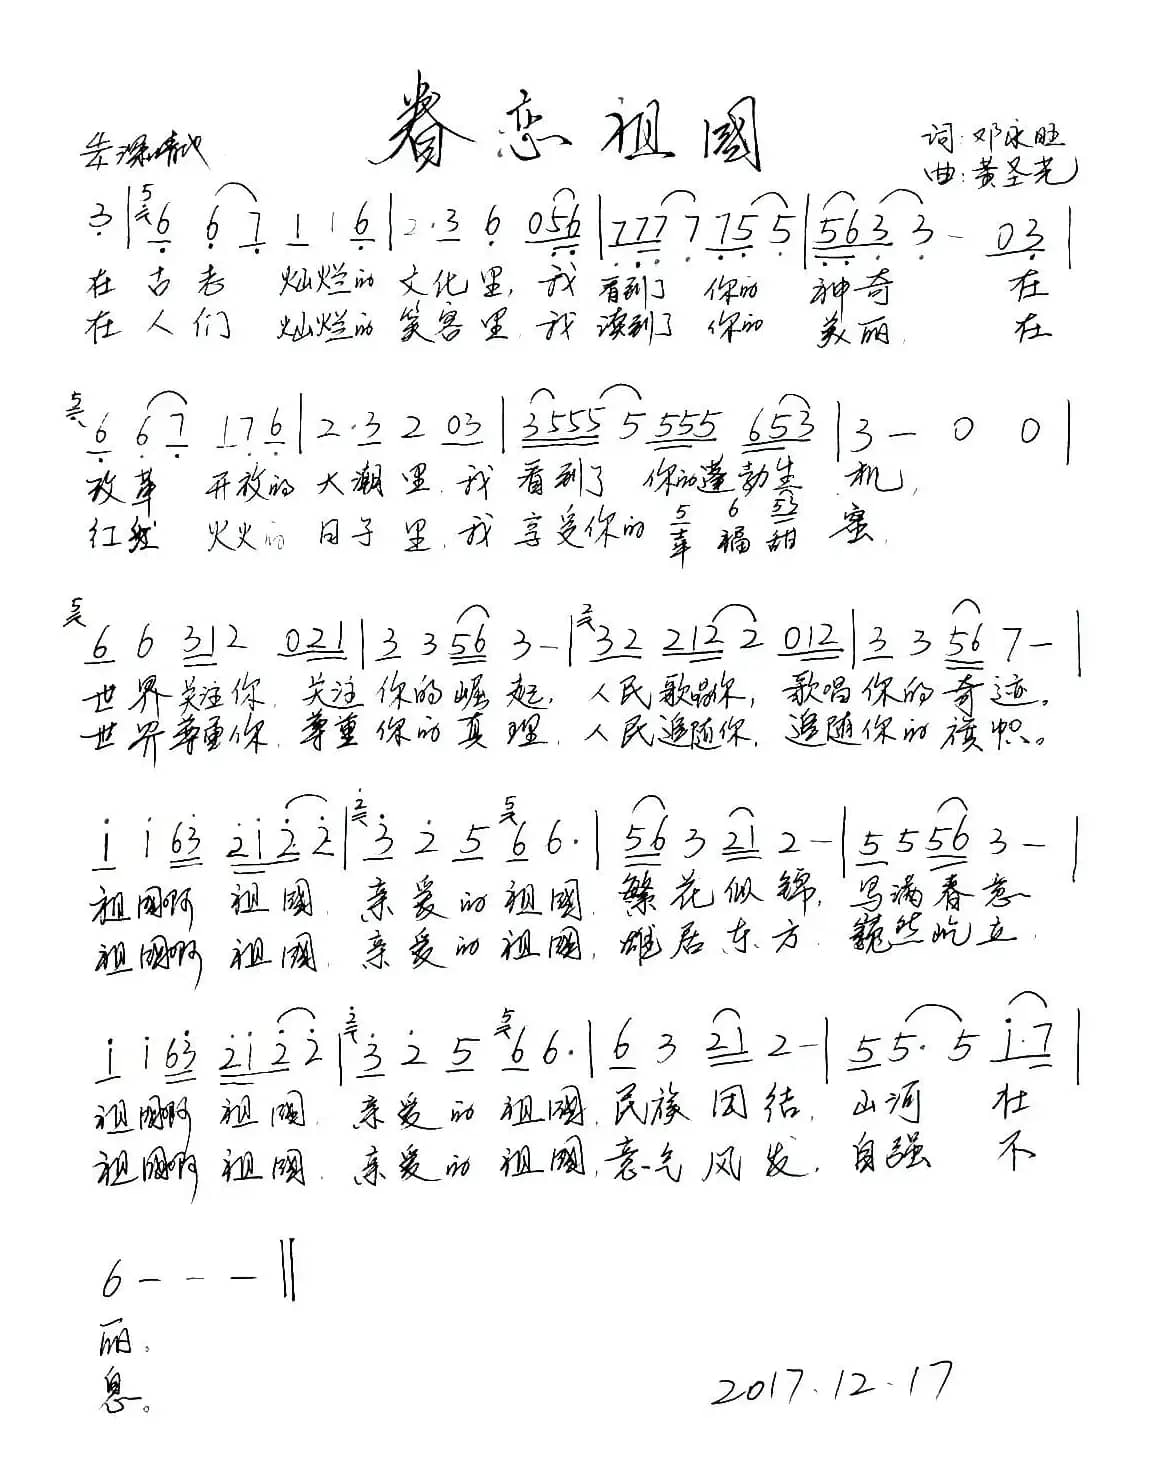 眷恋祖國
词:邓永旺
曲:黄圣光
3 | 5 6 6 7 1 1 6 | 2·3 6 056 | 777 7 775 5 | 563 3 - 03 |
在 古老 灿烂的 文化里, 我 看到了 你的 神奇 在
在 人们 灿烂的 笑容里, 我 读到了 你的 美丽, 在
5 6 6 7 176 | 2·3 2 03 | 3555 5 555 653 | 3 - 0 0 |
改革 开放的 大潮里, 我 看到了 你的蓬勃生 机,
5 6 53
红红 火火的 日子里, 我 享受你的 幸福甜 蜜,
5 6 6 312 021 | 3 3 56 3 - | 2 32 212 2 012 | 3 3 56 7 - |
世界关注你, 关注 你的崛起, 人民歌唱你, 歌唱你的奇迹。
世界尊重你, 尊重 你的真理, 人民追随你, 追随你的旗帜。
1 1 63 212 2 | 2 3 2 5 5 6 6· | 56 3 21 2 - | 5 5 56 3 - |
祖国啊 祖國, 亲爱的祖國, 繁花似锦, 写满春意
祖國啊 祖國, 亲爱的祖國, 雄居东方, 巍然屹立,
1 1 63 212 2 | 2 3 2 5 5 6 6· | 6 3 21 2 - | 5 5· 5 1·7 |
祖国啊 祖國, 亲爱的祖國, 民族团结, 山河 壮
祖國啊 祖國, 亲爱的祖國, 意气风发, 自强 不
6 - - - ‖
丽。
息。
2017.12.17